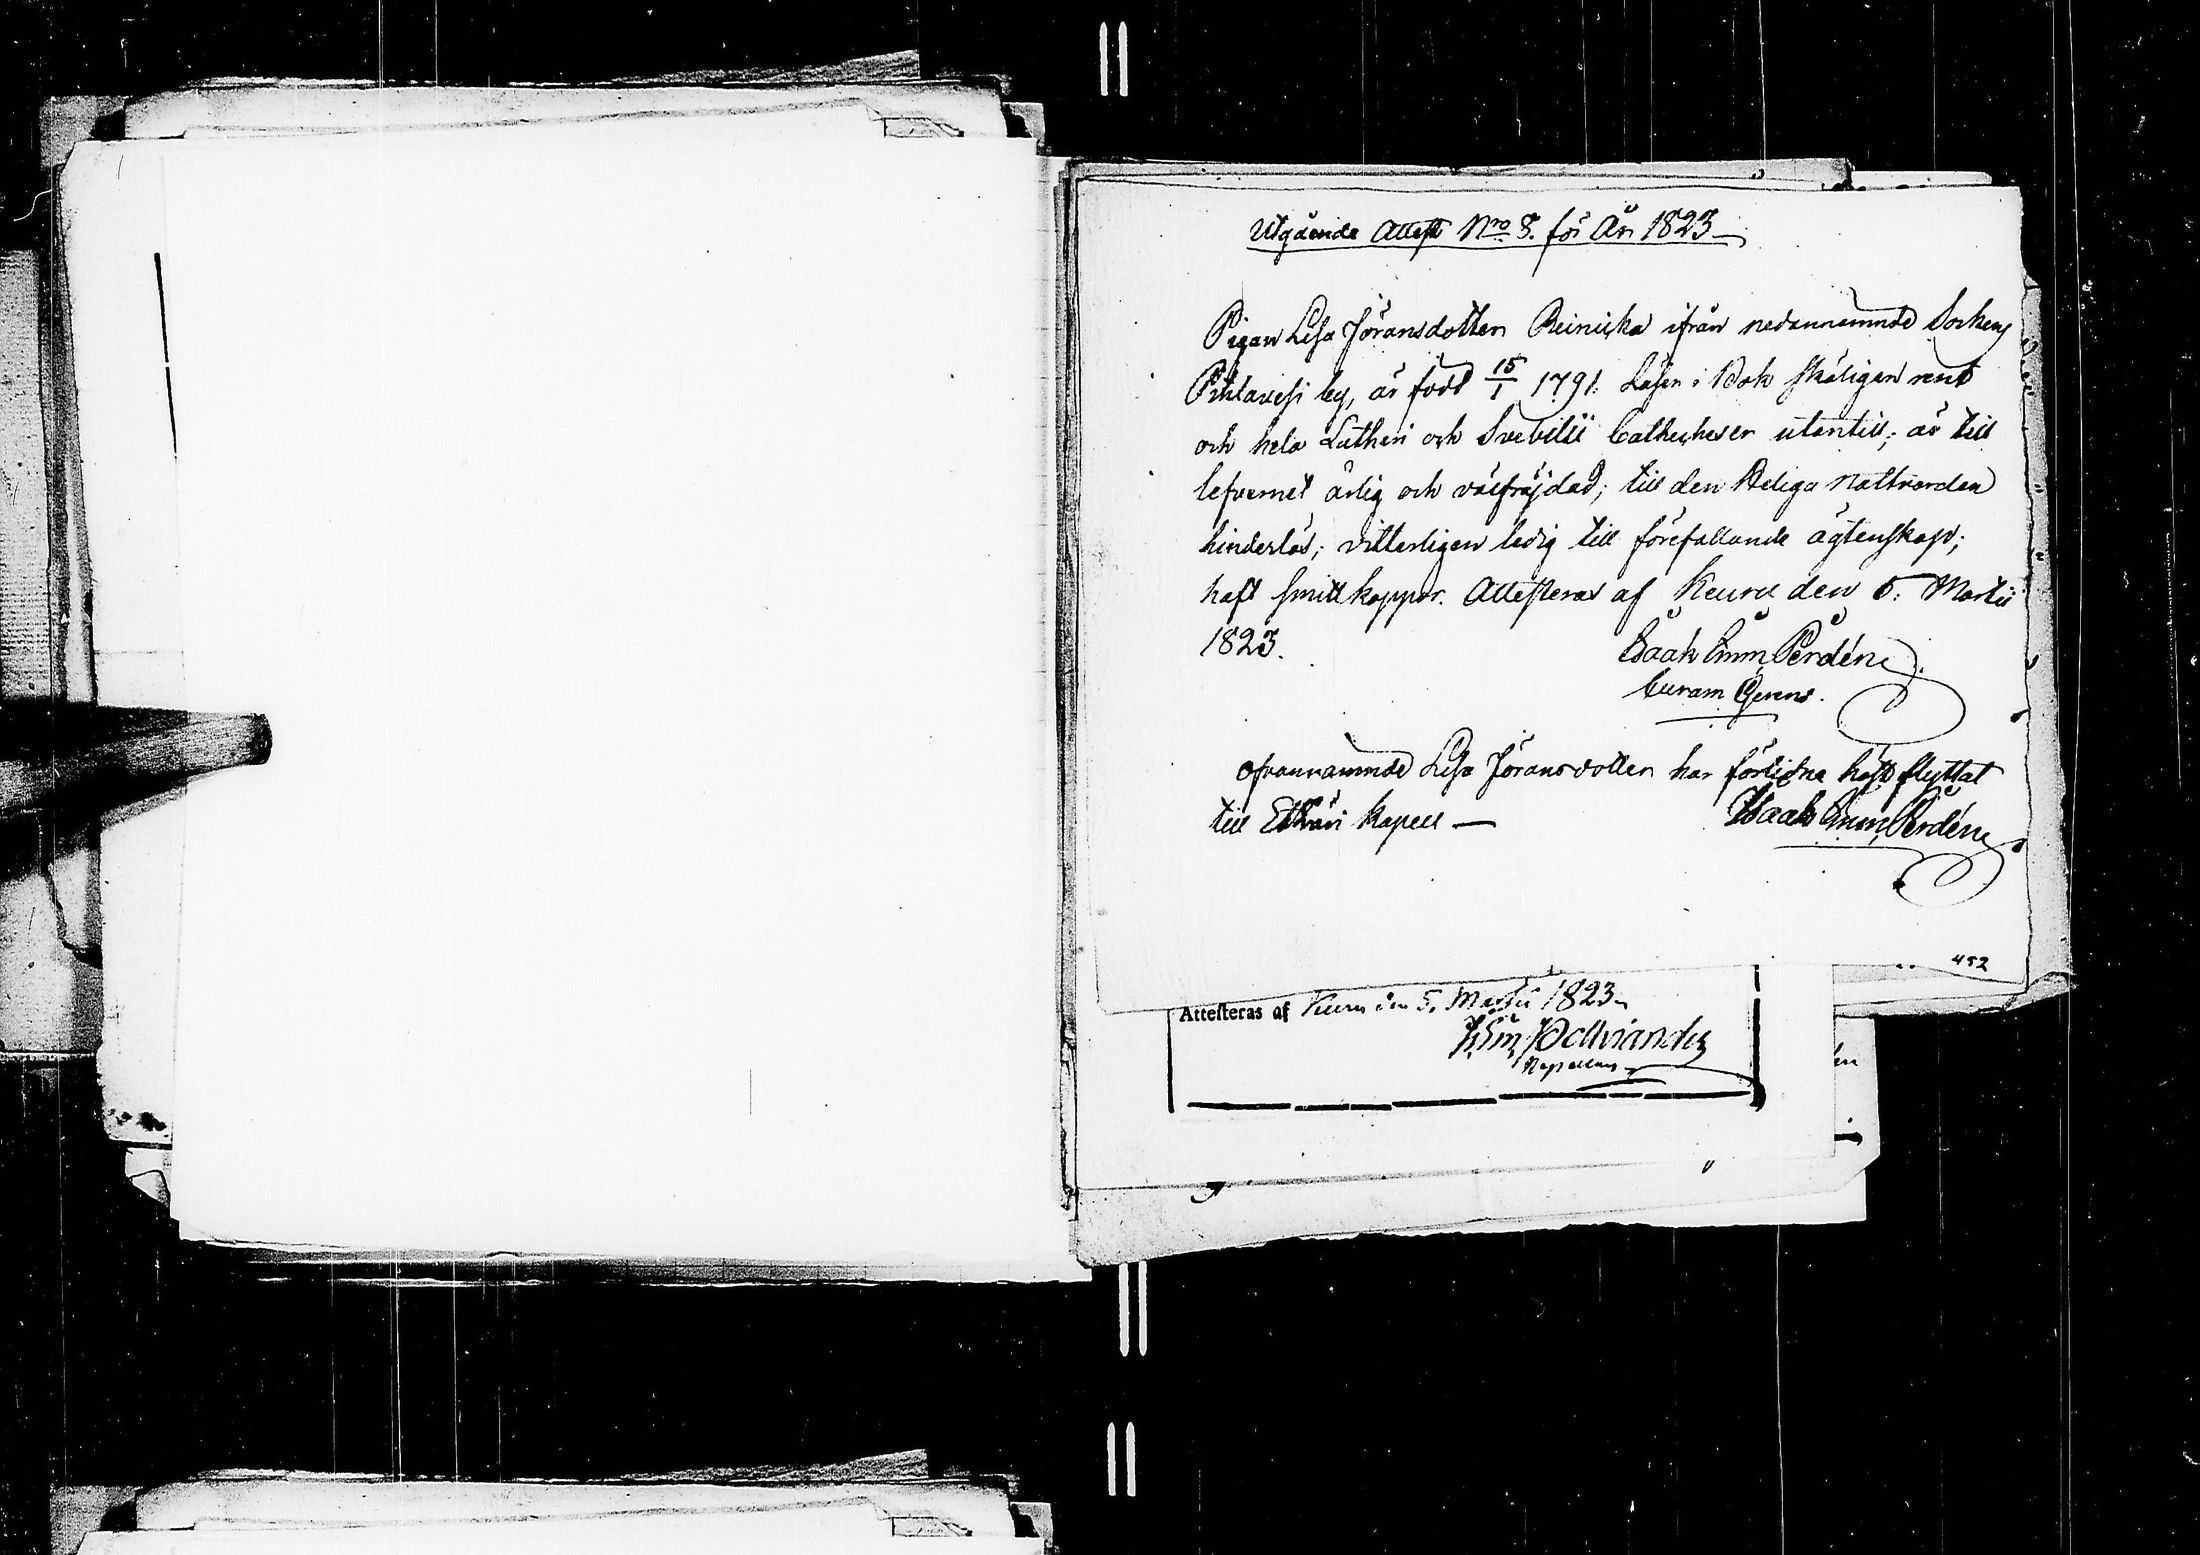 Utgående Attest Nro 8. för År 1823
Pigan Lisa Jöransdotter Reinicka ifrån nedannämnde Sockens
Pihlavesi by, är född 15/1 1791. Läser i Bok skäligen rent
och hela Lutheri och Svebilii Cathecheser utantill; är till
lefvernet ärlig och välfräjdad; till den Heliga Nattvarden
hinderlös; vitterligen ledig till förefallande ägtenskap;
haft smittkoppor. Attesteras af Keuru den 5. Martii
1823.
Isaak Emm Perdén
Curam Gerens.
Ofvannämnde Lisa Jöransdotter har förlidne höst flyttat
till Ethsäri Kapell —
Isaak Emm Perdén
452
Attesteras af Keuru den 5. Martii 1823
Kapellan
en